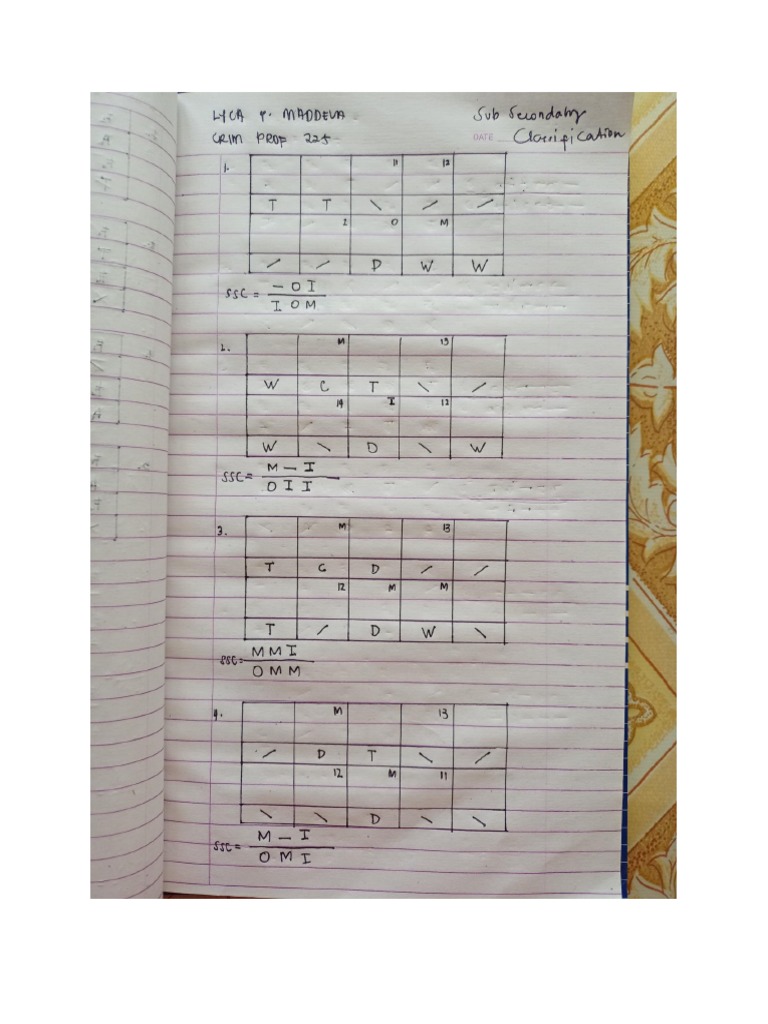 LYCA P. MADDELA Sub Secondary
CRIM PROF 225 DATE Classification
1. 11 12
T T \ / /
2 O M
/ / D W W
SSC = — O I
I O M
2. M 13
W C T \ /
14 I 12
W \ D \ W
SSC = M — I
O I I
3. M 13
T C D / /
12 M M
T / D W \
SSC = M M I
O M M
4. M 13
/ D T \ /
12 M 11
\ \ D \ \
SSC = M — I
O M I